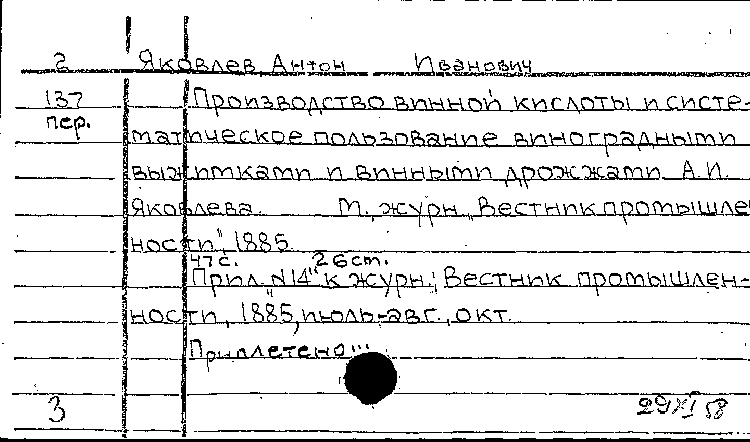 2 Яковлев, Антон Иванович
137 Производство винной кислоты и систе-
пер. матическое пользование виноградными
выжимками и винными дрожжами А.И.
Яковлева М., журн. „Вестник промышлен
ности", 1885.
47 с. 26 см.
Прил. N 14 к журн.: „Вестник промышлен-
ности, 1885, июль-авг., окт.
Приплетено
3 29/XI 58